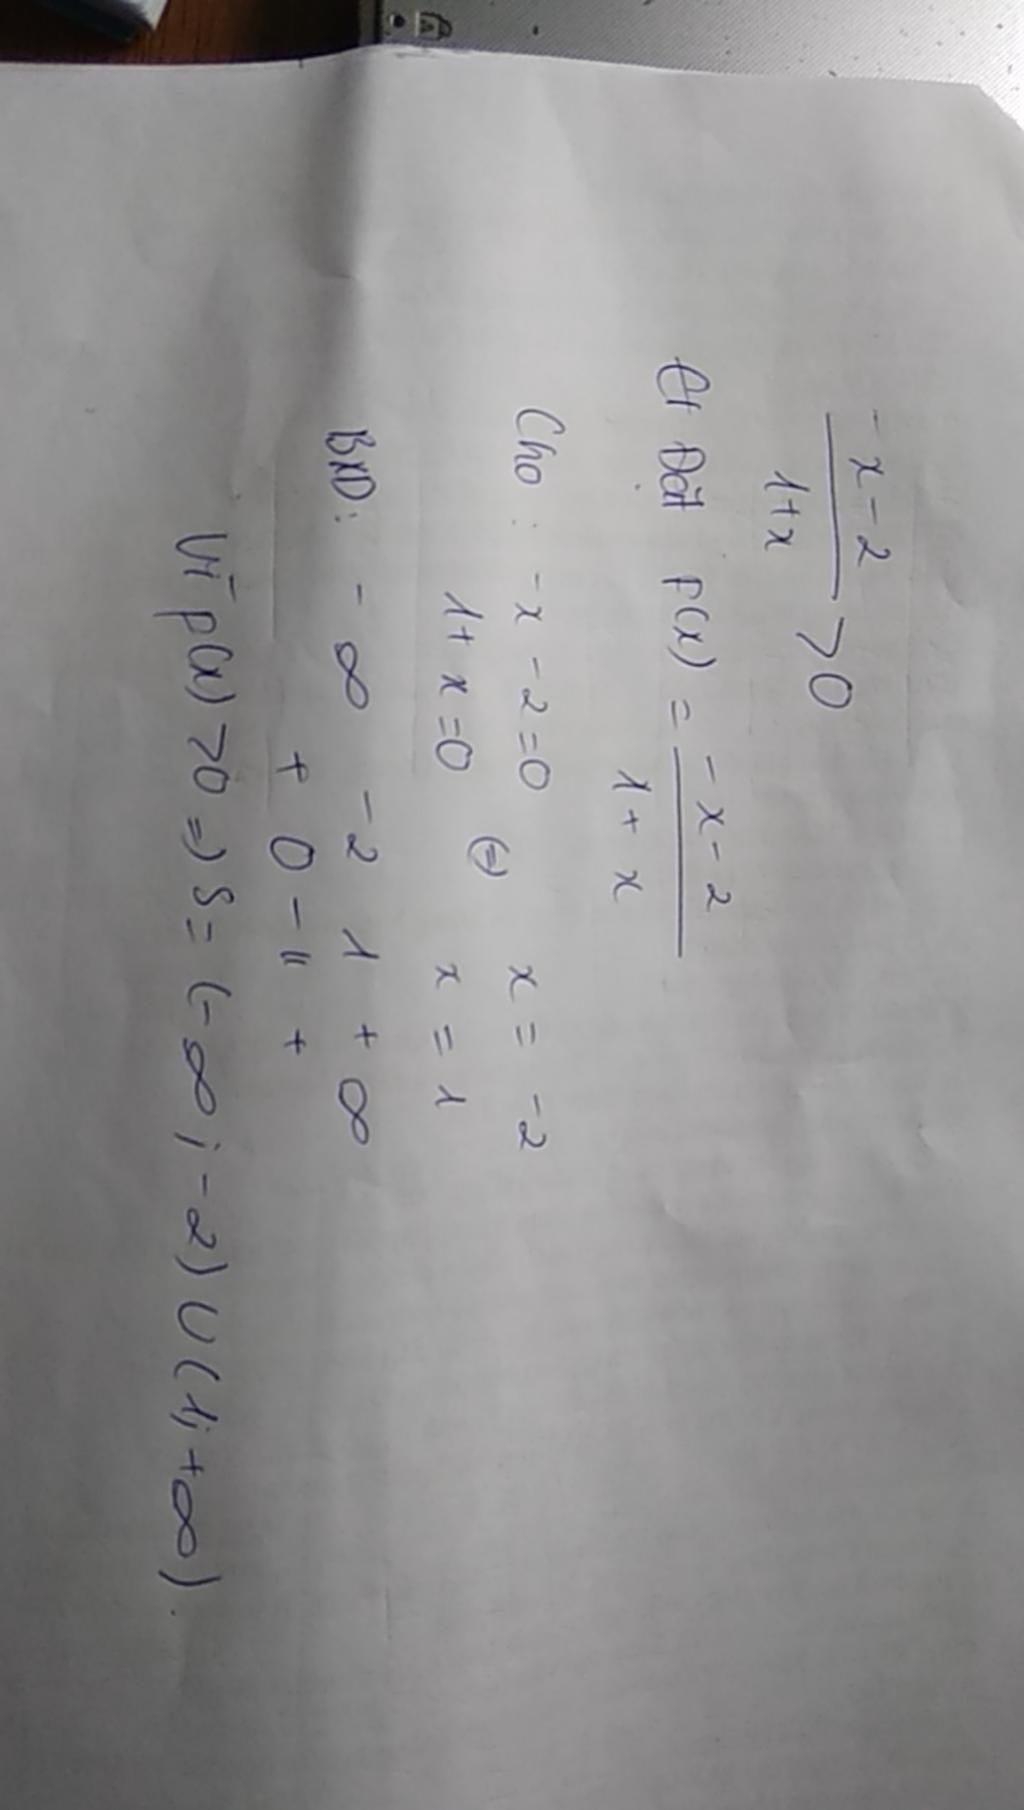 -x-2
1+x
>0
Đặt P(x) = -x-2
1+x
Cho : -x-2=0 x = -2
⇔
1+x=0 x = 1
BXD: -∞ -2 1 +∞
+ 0 - || +
Vì P(x) >0 => S= (-∞; -2) ∪ (1; +∞).